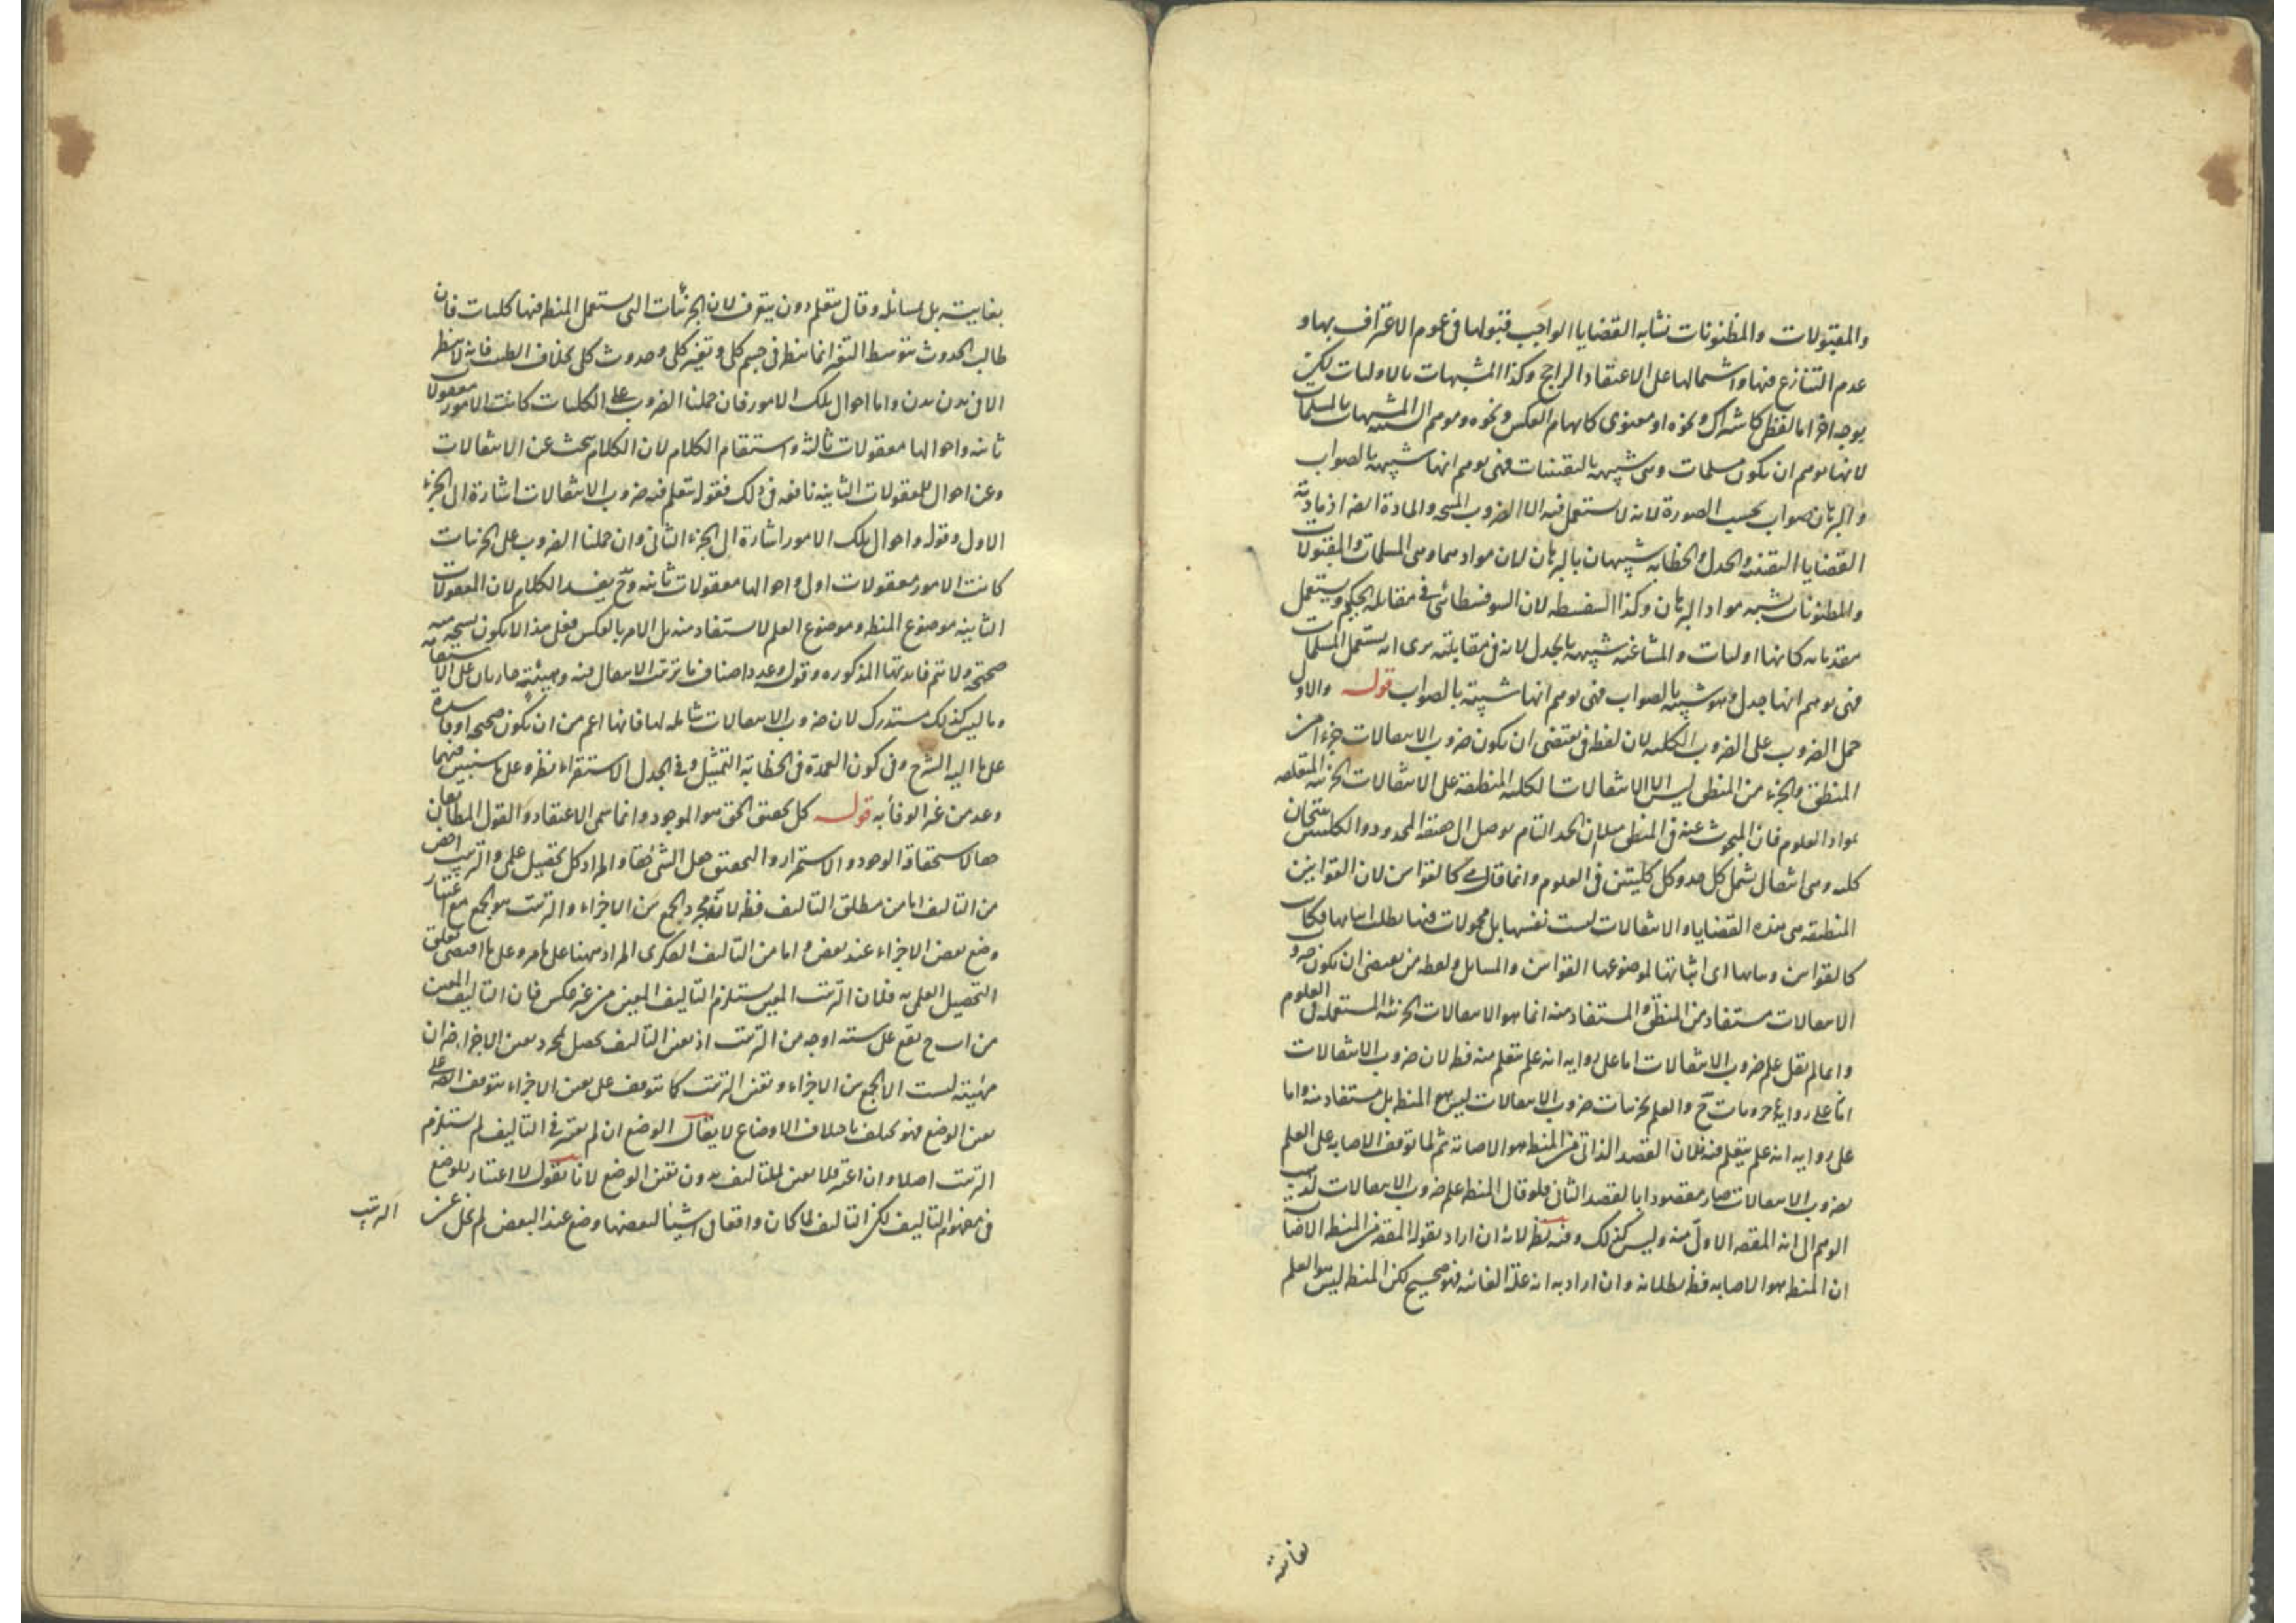 والمقبولات والمظنونات تشابه القضايا الواجب قبولها في عموم الاعتراف بها و
عدم التنازع فيها واشتمالها على الاعتقاد الراجح وكذا المشبهات بالاوليات لكن
بوجه اخر اما لفظي كاشتراك ونحوه او معنوي كايهام العكس ونحوه ومومم ال المشبهات بالمسلمات
لانها توهم ان تكون مسلمات وهي شبيهة باليقينيات فهي توهم انها شبيهة بالصواب
والبرهان صواب بحسب الصورة لانه لا يستعمل فيه الا الضروب المنتجة والمادة ايضا اذ مادته
القضايا اليقينية والجدل والخطابة شبيهان بالبرهان لان موادهما وهي المسلمات والمقبولات
والمظنونات تشبه مواد البرهان وكذا السفسطة لان السوفسطائي في مقابلة الحكيم ويستعمل
مقدماته كانها اوليات والمشاغبة شبيهة بالجدل لانه في مقابلته يرى انه يستعمل المسلمات
فهي توهم انها جدل وهو شبيه بالصواب فهي توهم انها شبيهة بالصواب قوله والاول
حمل الضروب على الضروب الكلية لان لفظة في يقتضي ان يكون ضروب الانتقالات جزءا من
المنطق والجزء من المنطق ليس الا الانتقالات الكلية المنطبقة على الانتقالات الجزئية المتعلقة
بمواد العلوم فان المبحوث عنه في المنطق مثلا ان الحد التام يوصل الى حقيقة المحدود والكليتين ينتجان
كلية وهي انتقال يشمل كل حد وكل كليتين في العلوم وانما قال كالقوانين لان القوانين
المنطقية هي هذه القضايا والانتقالات ليست نفسها بل محمولات فيها يطلب اثباتها فكانت
كالقوانين وبيانها اى اثباتها لموضوعها القوانين والمسايل ولفظة من يقتضي ان يكون ضروب
الانتقالات مستفاد من المنطق والمستفاد منه انما هو الانتقالات الجزئية المستعملة في العلوم
وانما لم يقل علم ضروب الانتقالات اما على رواية انه علم يتعلم منه فظ لان ضروب الانتقالات
على رواية جزئيات ح والعلم بجزئيات ضروب الانتقالات ليس هو المنطق بل مستفاد منه واما
على رواية انه علم يتعلم فيه فلان القصد الذاتي من المنطق هو الاصابة ثم لما توقف الاصابة على العلم
بضروب الانتقالات صار مقصودا بالقصد الثاني فلو قال المنطق علم ضروب الانتقالات لذهب
الوهم الى انه المقصد الاول منه وليس كذلك وفيه نظر لانه ان اراد بقوله المقصد من المنطق الاصابة
ان المنطق هو الاصابة فظ بطلانه وان اراد به انه علته الغائية فهو صحيح لكن المنطق ليس هو العلم
بغايته
بغايته بل مسائله وقال يتعلم دون يتعرف لان الجزئيات التي يستعمل المنطق فيها كليات فان
طالب الحدوث بتوسط التغير انما ينظر في جسم كلي وتغير كلي وحدوث كلي بخلاف الطب فانه لا ينظر
الا في بدن بدن واما احوال تلك الامور فان حملنا الضروب على الكليات كانت الامور معقولات
ثانية واحوالها معقولات ثالثة واستقام الكلام لان الكلام يبحث عن الانتقالات
وعن احوال المعقولات الثانية نافعة في ذلك فقوله يتعلم فيه ضروب الانتقالات اشارة الى الجزء
الاول وقوله واحوال تلك الامور اشارة الى الجزء الثاني وان حملنا الضروب على الجزئيات
كانت الامور معقولات اولى واحوالها معقولات ثانية وح يفسد الكلام لان المعقولات
الثانية موضوع المنطق وموضوع العلم لا يستفاد منه بل الامر بالعكس فعلى هذا لا يكون نسخة منه
صحيحة ولا تتم فائدتها المذكورة وقوله وعدد اصناف ما ترتيب الانتقال فيه وهيئته جاريان على الاستقامة
وما ليس كذلك مستدرك لان ضروب الانتقالات شاملة لها فانها اعم من ان تكون صحيحة او فاسدة
على ما اليه الشرح وفي كون العمدة في الخطابة التمثيل وفي الجدل الاستقراء نظر وعلى ما سنبين فيهما
وعد من غير الوفاء به قوله كل تحقيق الحق هو الموجود وانما سمي الاعتقاد والقول المطابقان
حقا لاستحقاقه الوجود والاستمرار والتحقيق جعل الشيء حقا والمراد كل تحصيل علمي والترتيب اخص
من التاليف اما من مطلق التاليف فظ لانه مجرد الجمع بين الاجزاء والترتيب هو الجمع مع اعتبار
وضع بعض الاجزاء عند بعض واما من التاليف الفكري المراد ههنا على ما مر وعلى ما اقتضى تعلق
التحصيل العلمي به فلان الترتيب المعين يستلزم التاليف المعين من غير عكس فان التاليف المعين
من ا ب ح يقع على ستة اوجه من الترتيب اذ تعين التاليف يحصل بمجرد تعين الاجزاء ضرورة ان
هيئته ليست الا الجمع بين الاجزاء وتعين الترتيب كما يتوقف على تعين الاجزاء يتوقف ايضا على
تعين الوضع فهو يختلف باختلاف الاوضاع لا يقال الوضع ان لم يعتبر في التاليف لم يستلزم
الترتيب اصلا وان اعتبر فلا تعين للتاليف بدون تعين الوضع لانا نقول لا اعتبار للوضع
في مفهوم التاليف لكن التاليف لما كان واقعا في اشيا لبعضها وضع عند البعض لم يخل عن
الترتيب